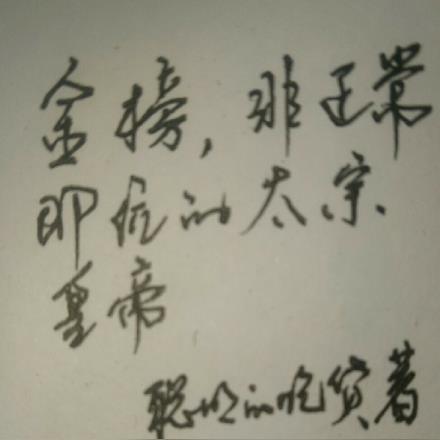 金榜,非正常
即位的太宗
皇帝
聪明的吃货著